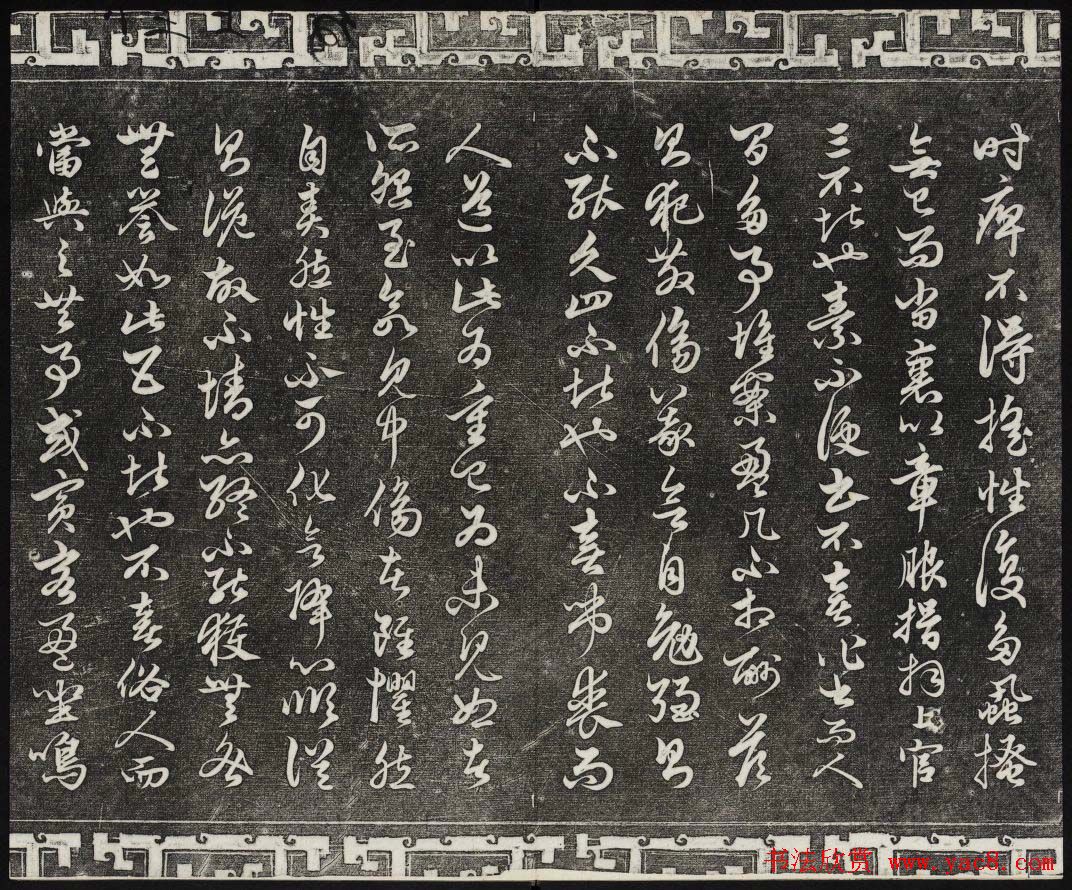 時痹不得搖性復多蝨搔
無已而當裹以章服揖拜上官
三不堪也素不便書不喜作書而人
間多事堆案盈几不相酬答
則犯教傷義欲自勉強則
不能久四不堪也不喜弔喪而
人道以此為重已為未見恕者
所怨至欲見中傷者雖懼然
自責然性不可化欲降心順從
則詭故不情亦終不能獲無咎
無譽如此五不堪也不喜俗人而
當與之共事或賓客盈坐鳴
书法欣赏 www.yac8.com